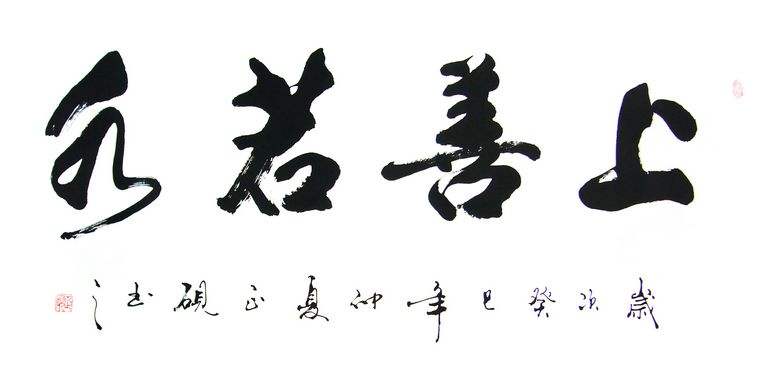 上善若水
歲次癸巳年仲夏正硯書之